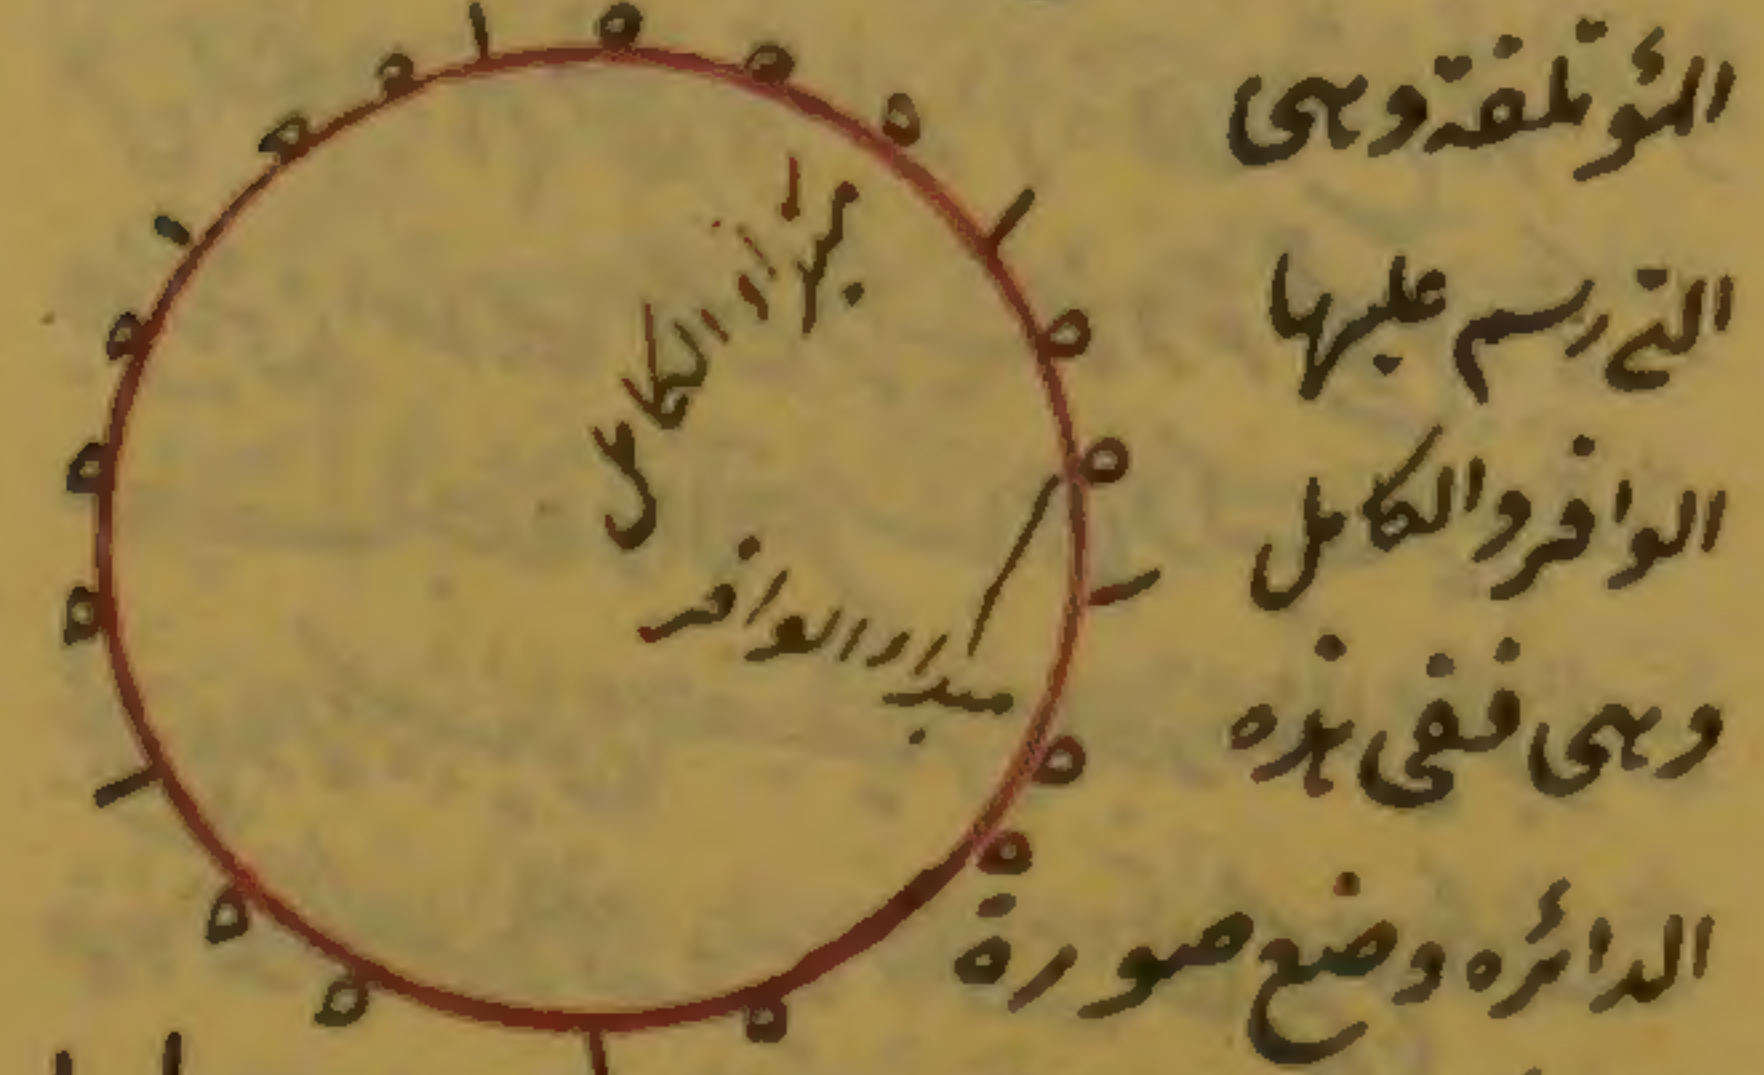 المؤتلفة وهى
التى رسم عليها
الوافر والكامل
وهى ففى هذه
الدائره وضع صورة
الكامل
مبدا الوافر